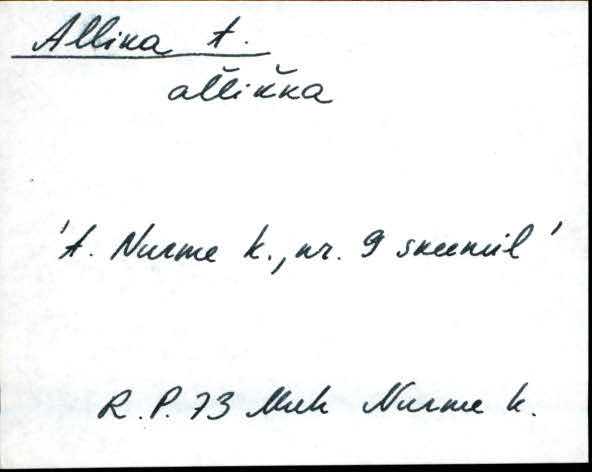 Allika t.
allikka
't. Nurme k., nr. 9 skeemil'
R. P. 73 Muh Nurme k.